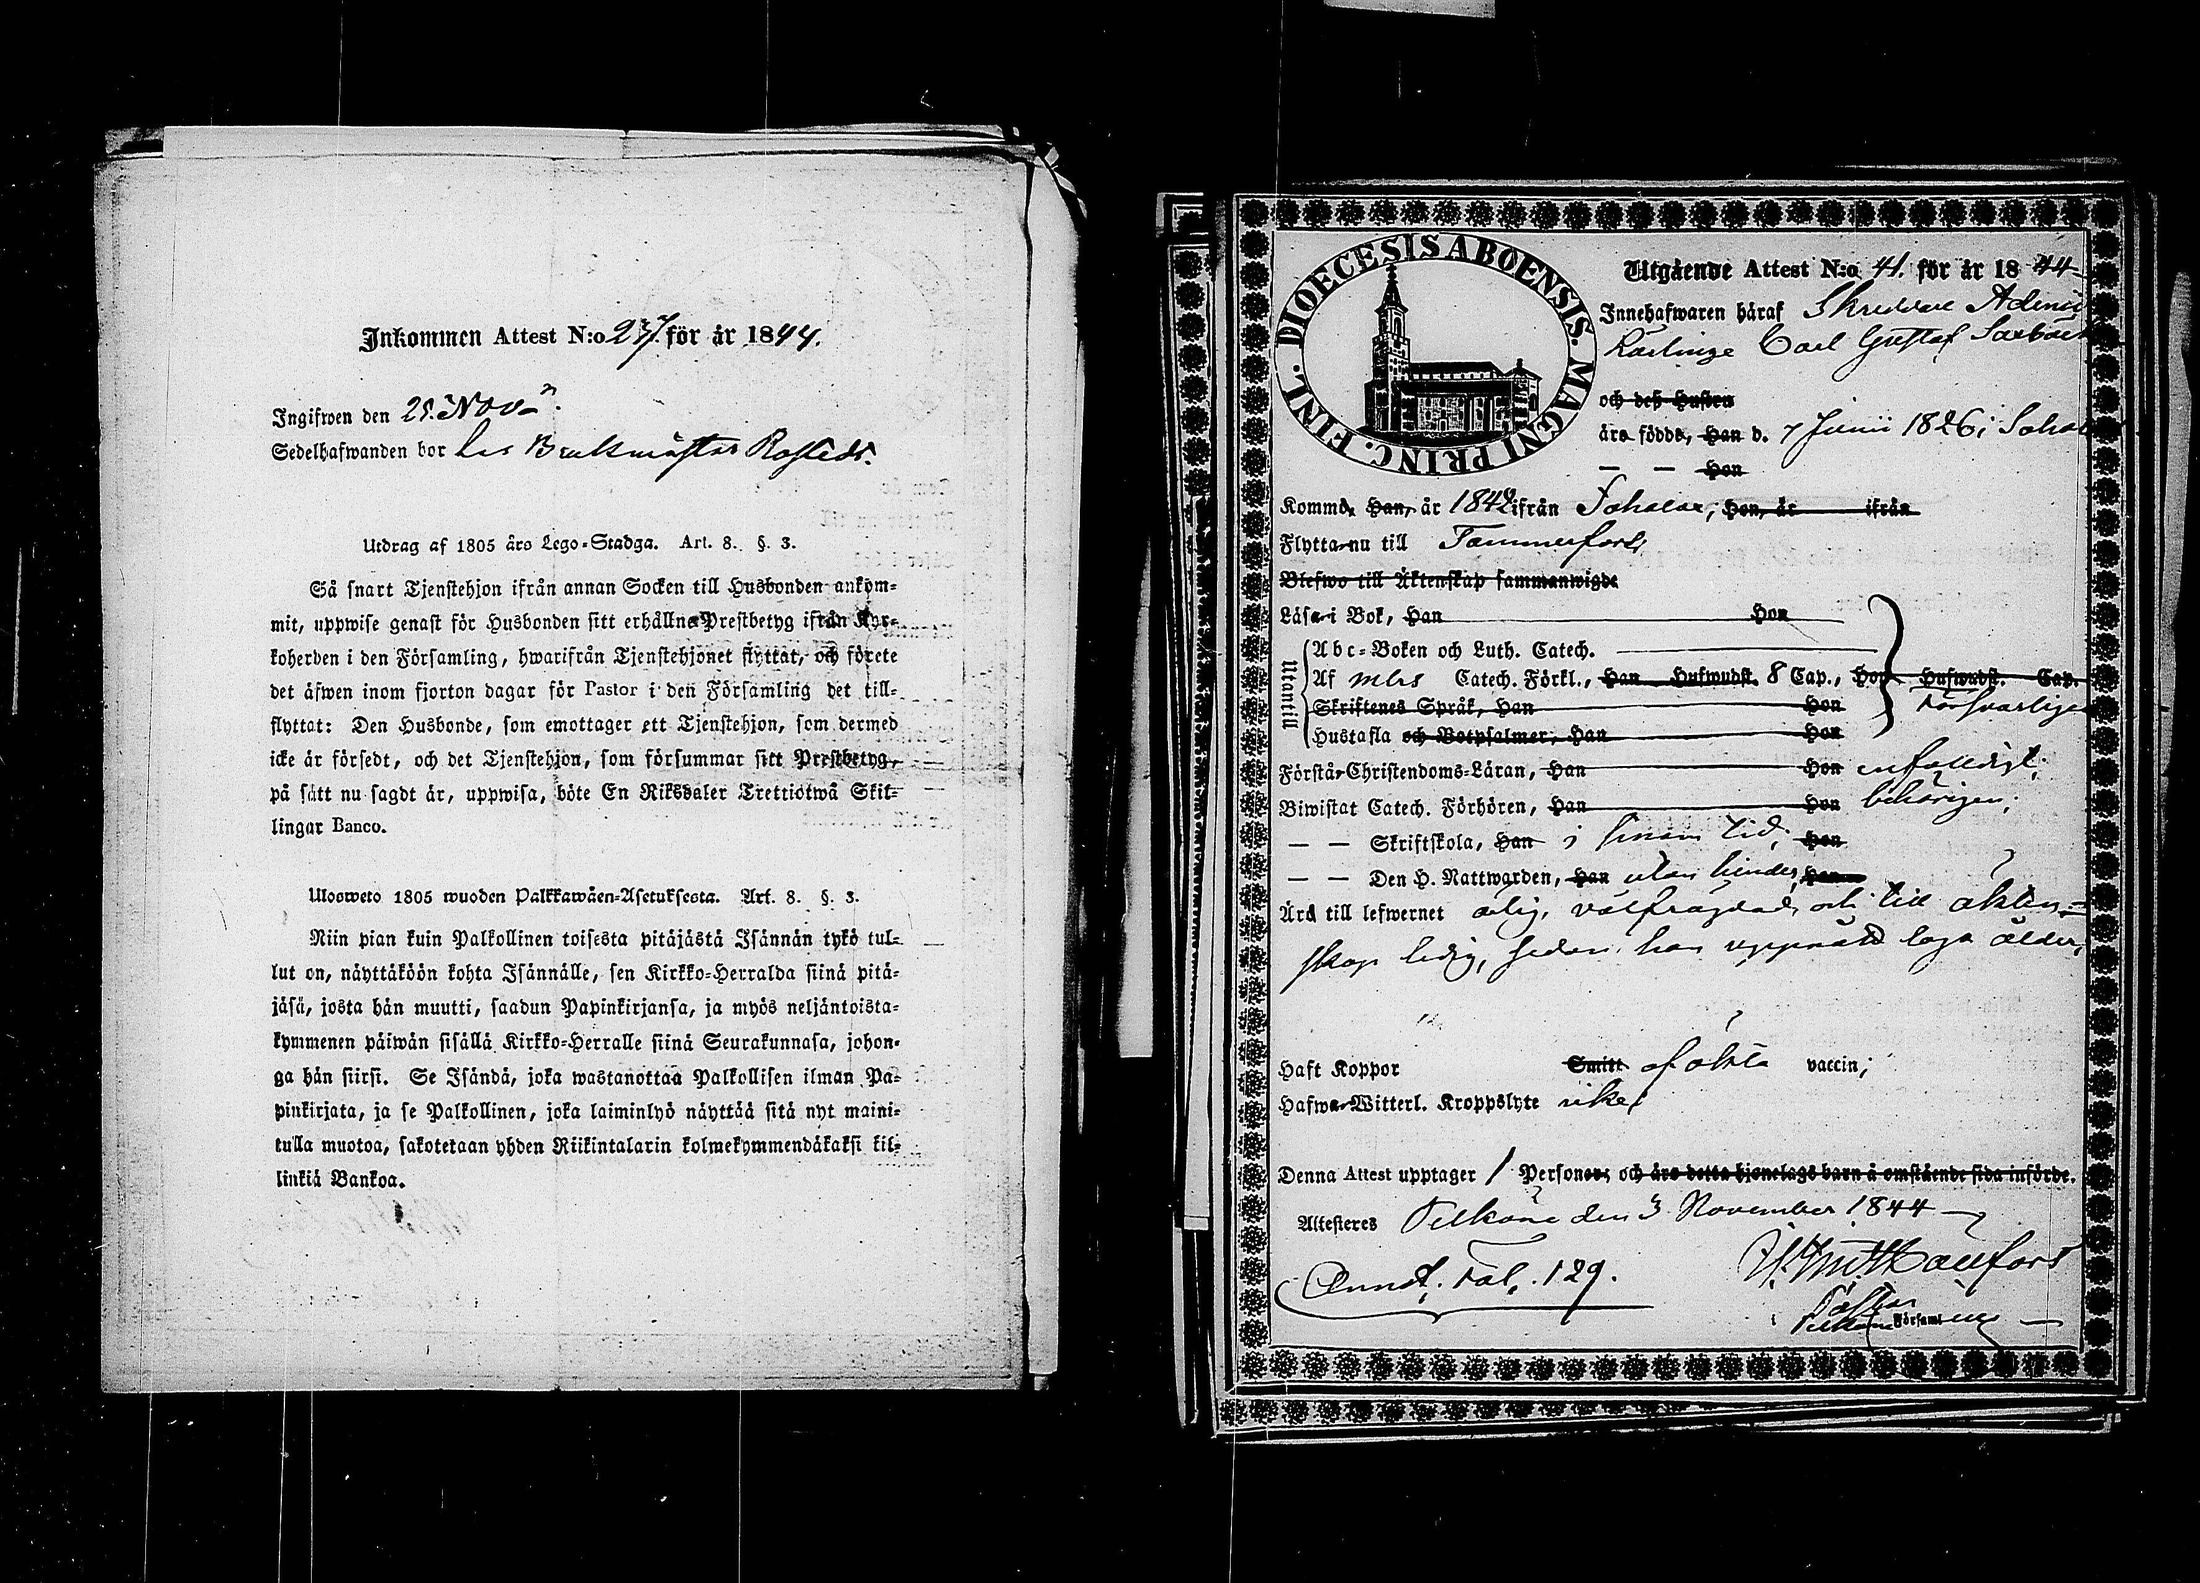 Inkommen Attest N:o 237. för år 1844.
Ingifwen den 25. Nov
Sedelhafwanden bor hos Bruksmäster Rosteds.
Utdrag af 1805 års Lego-Stadga. Art. 8. §. 3.
Så snart Tjenstehjon ifrån annan Socken till Husbonden ankom-
mit, uppwise genast för Husbonden sitt erhållne Prestbetyg ifrån Kyr-
koherden i den Församling, hwarifrån Tjenstehjonet flyttat, och förete
det äfwen inom fjorton dagar för Pastor i den Församling det till-
flyttat: Den Husbonde, som emottager ett Tjenstehjon, som dermed
icke är försedt, och det Tjenstehjon, som försummar sitt Prestbetyg,
på sätt nu sagdt är, uppwisa, böte En Riksdaler Trettiotwå Skil-
lingar Banco.
Ulosweto 1805 wuoden Palkkawäen-Asetuksesta. Art. 8. §. 3.
Niin pian kuin Palkollinen toisesta pitäjästä Isännän tykö tul-
lut on, näyttäköön kohta Isännälle, sen Kirkko-Herralda siinä pitä-
jäsä, josta hän muutti, saadun Papinkirjansa, ja myös neljäntoista-
kymmenen päiwän sisällä Kirkko-Herralle siinä Seurakunnasa, johon-
ga hän siirsi. Se Isändä, joka wastanottaa Palkollisen ilman Pa-
pinkirjata, ja se Palkollinen, joka laiminlyö näyttää sitä nyt maini-
tulla muotoa, sakotetaan yhden Riikintalarin kolmekymmendäkaksi kil-
linkiä Bankoa.
DIOECESIS ABOENSIS. MAGNI PRINC. FINL.
Utgående Attest N:o 41. för år 1844
Innehafwaren häraf Skreddare
Lärlinge Carl Gustaf
och deß Hustru
äro födde, Han d. 7 Junii 1826 i
— — Hon
Komme Han, år 1842 ifrån Sahalax; Hon, år ifrån
Flytta nu till Tammerfors;
Blefwo till Äktenskap sammanwigde
Läsa i Bok, Han Hon
Utantill
Abc-Boken och Luth. Catech.
Af mbs Catech. Förkl., Han Hufwudst. 8 Cap., Hon Hufwudst. Cap.
Skriftenes Språk, Han Hon försvarligen
Hustafla och Botpsalmer, Han Hon
Förstår Christendoms-Läran, Han Hon enfaldigt;
Biwistat Catech. Förhören, Han Hon behörigen;
— — Skriftskola, Han i sinom tid; Hon
— — Den H. Nattwarden, Han utan hinder; Hon
Ärd till lefwernet ärlig, välfrägdad, och till äkten-
skap ledig, sedan han uppnått laga ålder;
Haft Koppor Smitt af äkta vaccin;
Hafwa Witterl. Kroppslyte icke;
Denna Attest upptager 1 Personer; och äro detta hjonelags barn å omstående sida införde.
Altesteres Pelkäne den 3 November 1844
Annot. Fol. 129.
Pastor
Pelkäne Församling